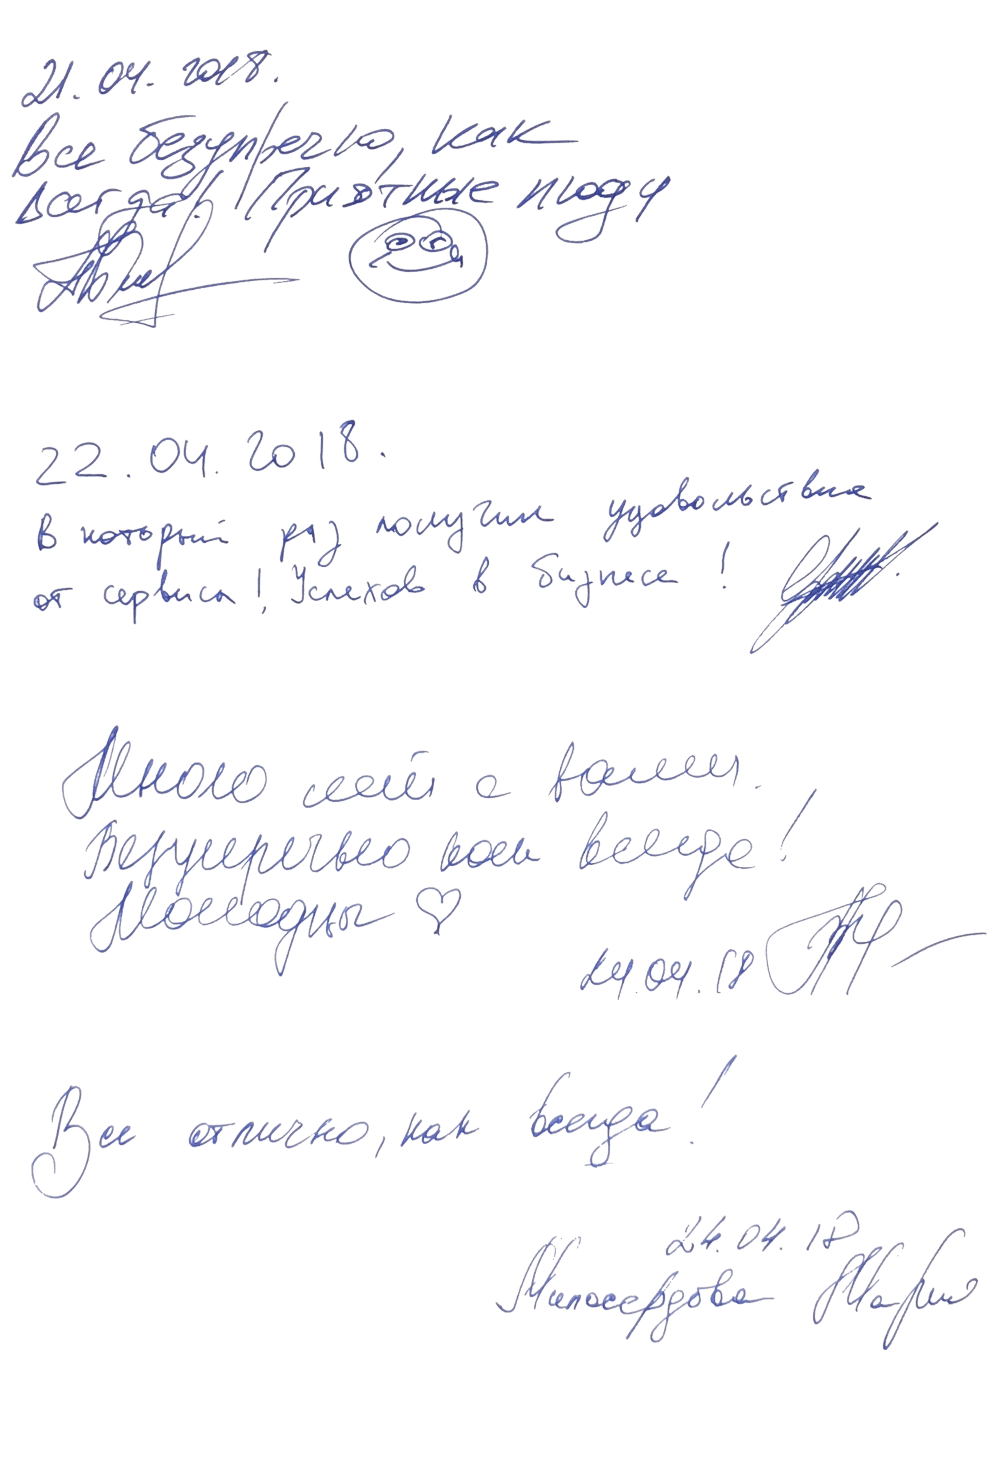 21.04.2018.
Все безупречно, как
всегда! Приятные люди
22.04.2018.
В который раз получили удовольствие
от сервиса! Успехов в бизнесе!
Много лет с вами.
Безупречно как всегда!
Молодцы
24.04.18
Все отлично, как всегда!
24.04.18
Милосердова Мария